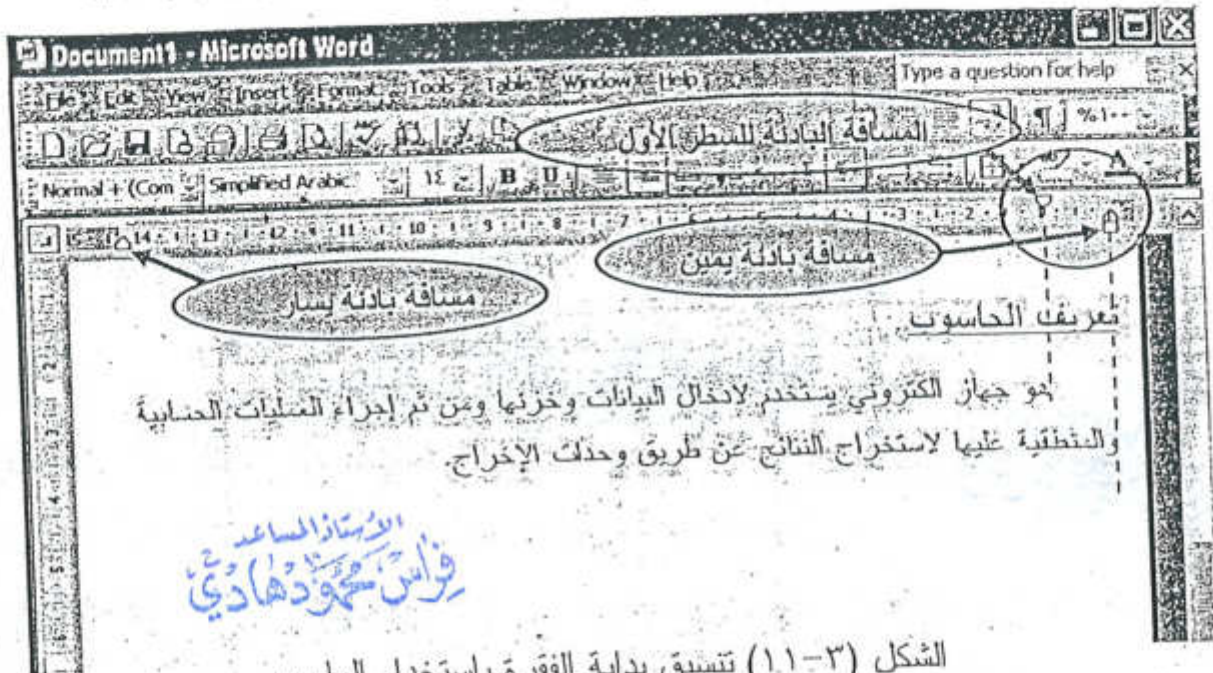 Document1 - Microsoft Word
File Edit View Insert Format Tools Table Window Help Type a question for help
المسافة البادئة للسطر الأول
%١٠٠
Normal + (Com Simplified Arabic ١٤ B U A
14 13 12 11 10 9 8 7 3 2 1
مسافة بادئة يمين
مسافة بادئة يسار
تعريف الحاسوب
هو جهاز الكتروني يستخدم لادخال البيانات وخزنها ومن ثم إجراء العمليات الحسابية
والمنطقية عليها لاستخراج النتائج عن طريق وحدات الإخراج.
الأستاذ المساعد
فراس محمود هادي
الشكل (٣-١١) تنسيق بداية الفقرة باستخدام